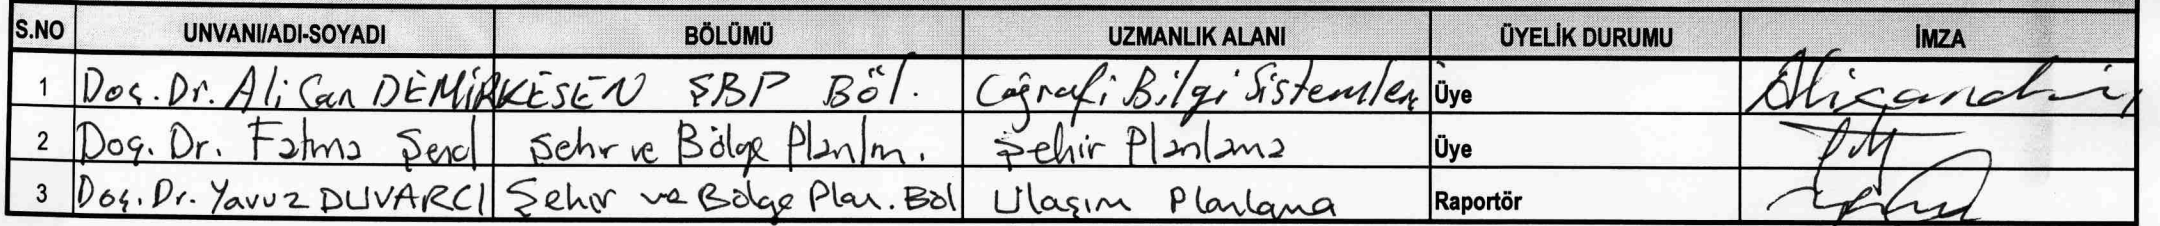 S.NO UNVANI/ADI-SOYADI BÖLÜMÜ UZMANLIK ALANI ÜYELİK DURUMU İMZA
1 Doç. Dr. Ali Can DEMİRKESEN ŞBP Böl. Coğrafi Bilgi Sistemleri Üye
2 Doç. Dr. Fatma Şenol Şehir ve Bölge Planlm. Şehir Planlama Üye
3 Doç. Dr. Yavuz DUVARCI Şehir ve Bölge Plan. Böl Ulaşım Planlama Raportör